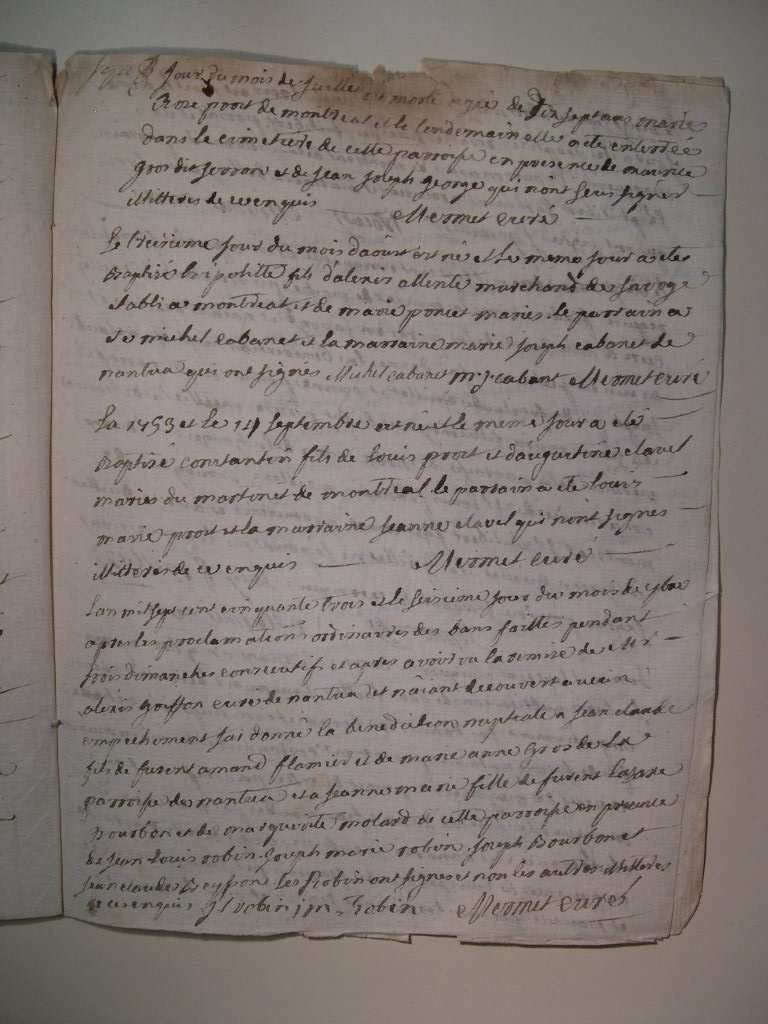 jour du mois de Juille est morte agée de dix sept ans marie
Rose prost de montreal et le lendemain elle a été enterrée
dans le cimetiere de cette parroisse en presence de maurice
gros dit ferron et de jean joseph george qui n'ont sceu signer
illitteres de ce enquis Mermet curé
le treizieme jour du mois d'aoust est né et le meme jour a ete
baptisé hipolitte fils d'alexis allente marchand de savoye
etabli a montreal et de marie poncet maries. le parrain a
ete michel cabanet et la marraine marie joseph cabanet de
nantua qui ont signés Michel cabanet m. j. cabanet Mermet curé
La 1753 et le 14 septembre est né et le meme jour a eté
Baptisé constantin fils de louis prost et d'augustine clavel
maries du martinet de montreal. le parrain a ete louis
marie prost et la marraine jeanne clavel qui n'ont signes
illitteres de ce enquis Mermet curé
Lan mil sept cent cinquante trois et le seizieme jour du mois de
apres les proclamations ordinaires des bans faittes pendant
trois dimanches consecutifs et apres avoir vu la remise de
alexis gouffon curé de nantua et n'aiant decouvert aucun
empechement j'ai donné la benediction nuptiale a jean claude
fils de furent amand flamier et de marie anne gros de la
parroisse de nantua et a jeanne marie fille de furent lazare
Bourbon et de marguerite molard de cette parroisse en presence
de jean louis robin. joseph marie robin. joseph Bourbon et
jean claude Beysson les Robin ont signes et non les aultres illitteres
de ce enquis j l robin j m Robin Mermet curé